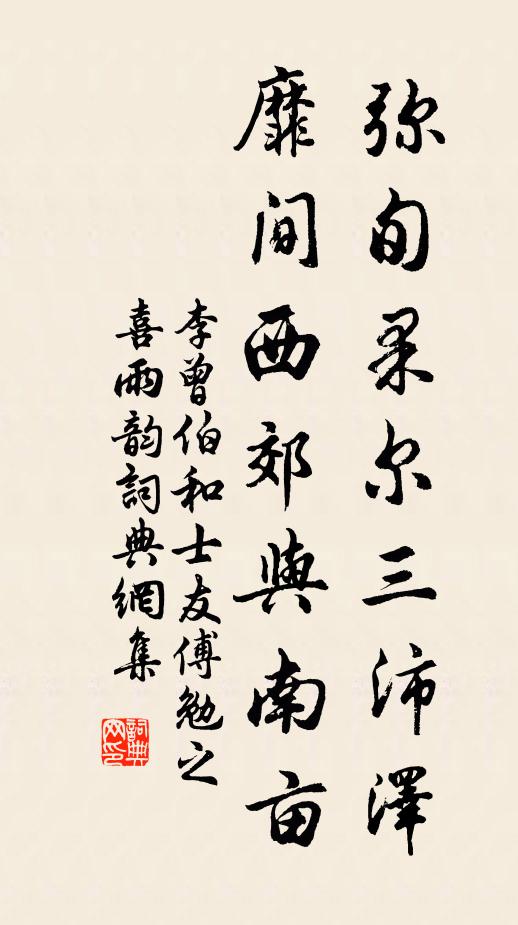 弥旬果尔三沛澤
靡间西郊與南亩
李曾伯和士友傅勉之
喜雨韵詞典網集
詞典网印